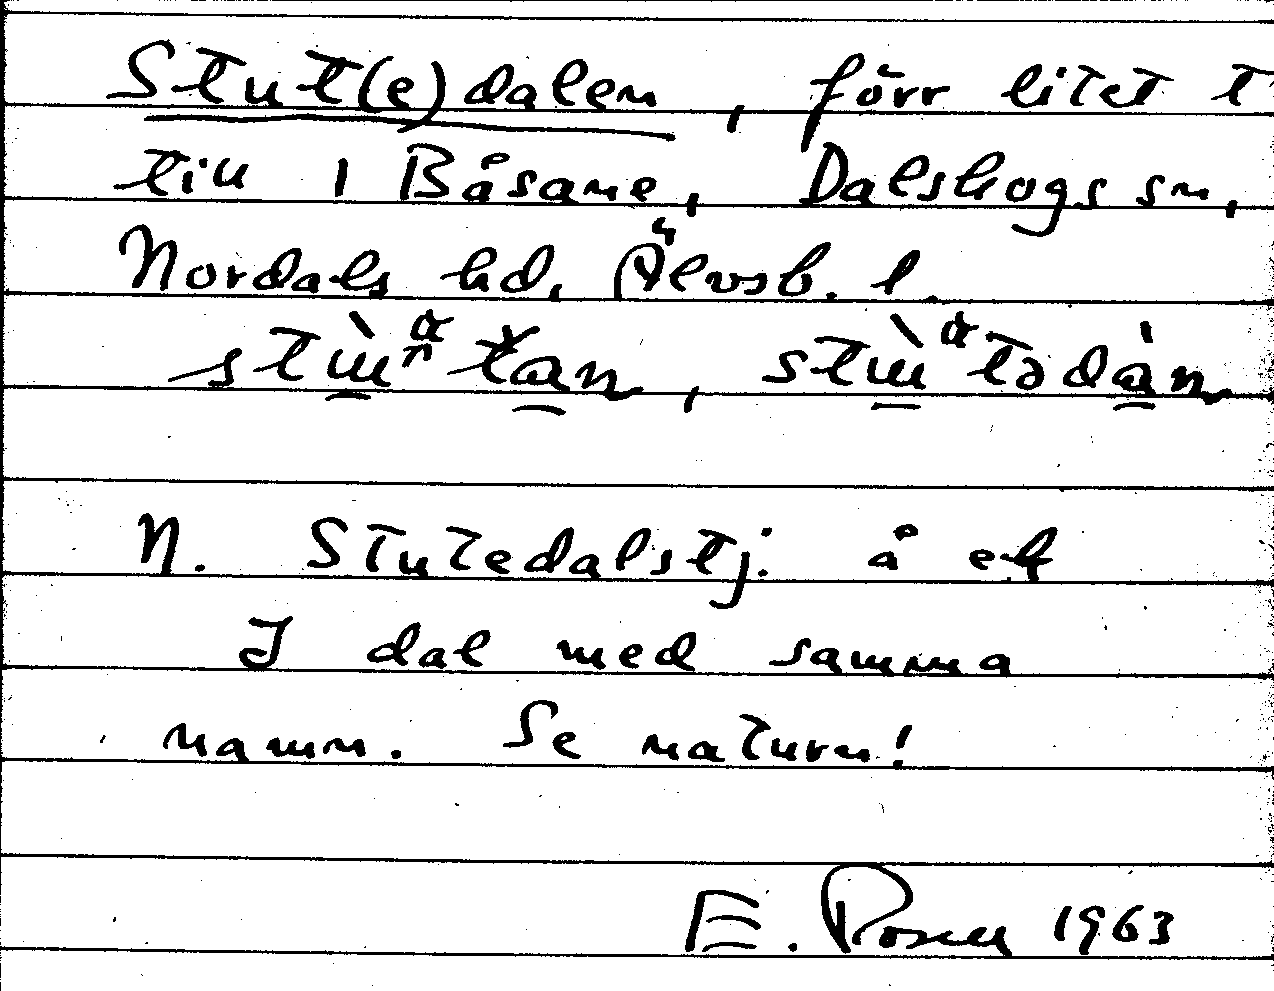 Stut(e)dalen, förr litet t
till 1 Båsane, Dalskogs sn,
Nordals hd, Älvsb. l.
N. Stutedalstj: å ek
I dal med samma
namn. Se naturn!
E. Rosell 1963